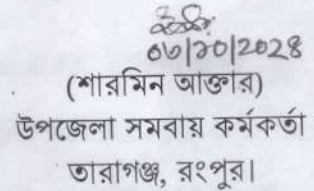 ০৬/১০/২০২৪
(শারমিন আক্তার)
উপজেলা সমবায় কর্মকর্তা
তারাগঞ্জ, রংপুর।